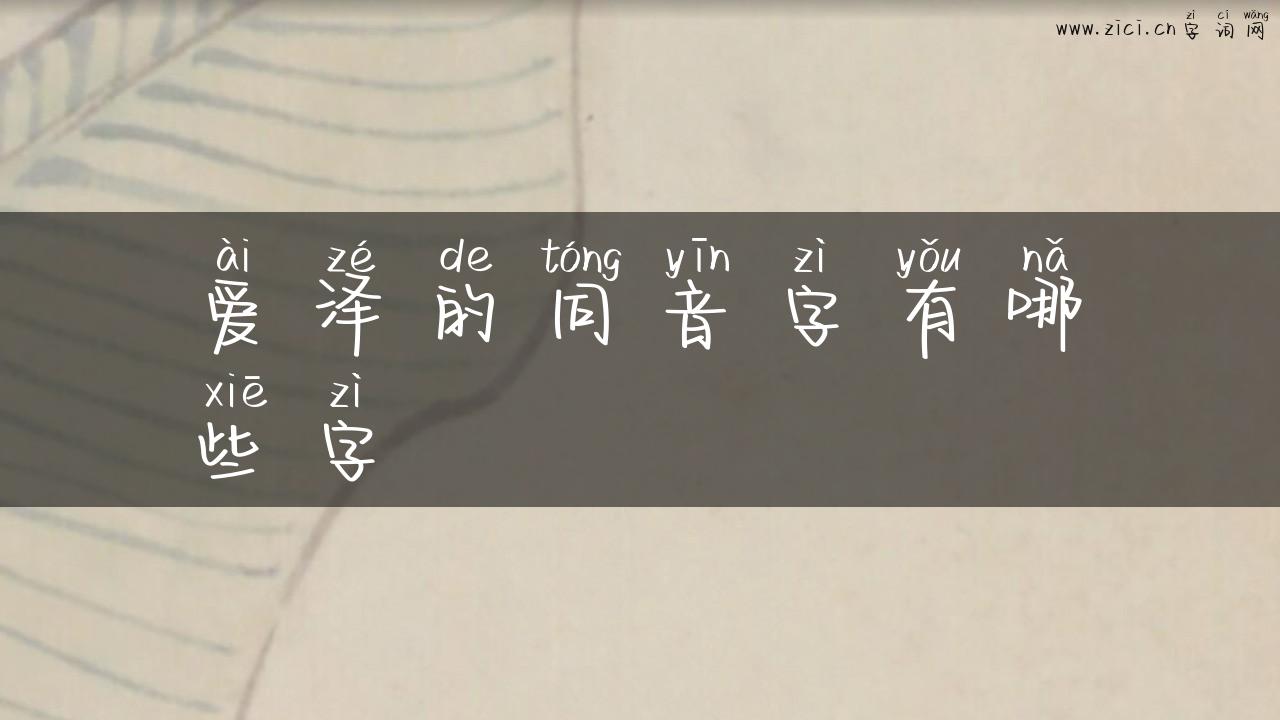 zì cí wǎng
www.zici.cn 字词网
ài zé de tóng yīn zì yǒu nǎ
爱泽的同音字有哪
xiē zì
些字